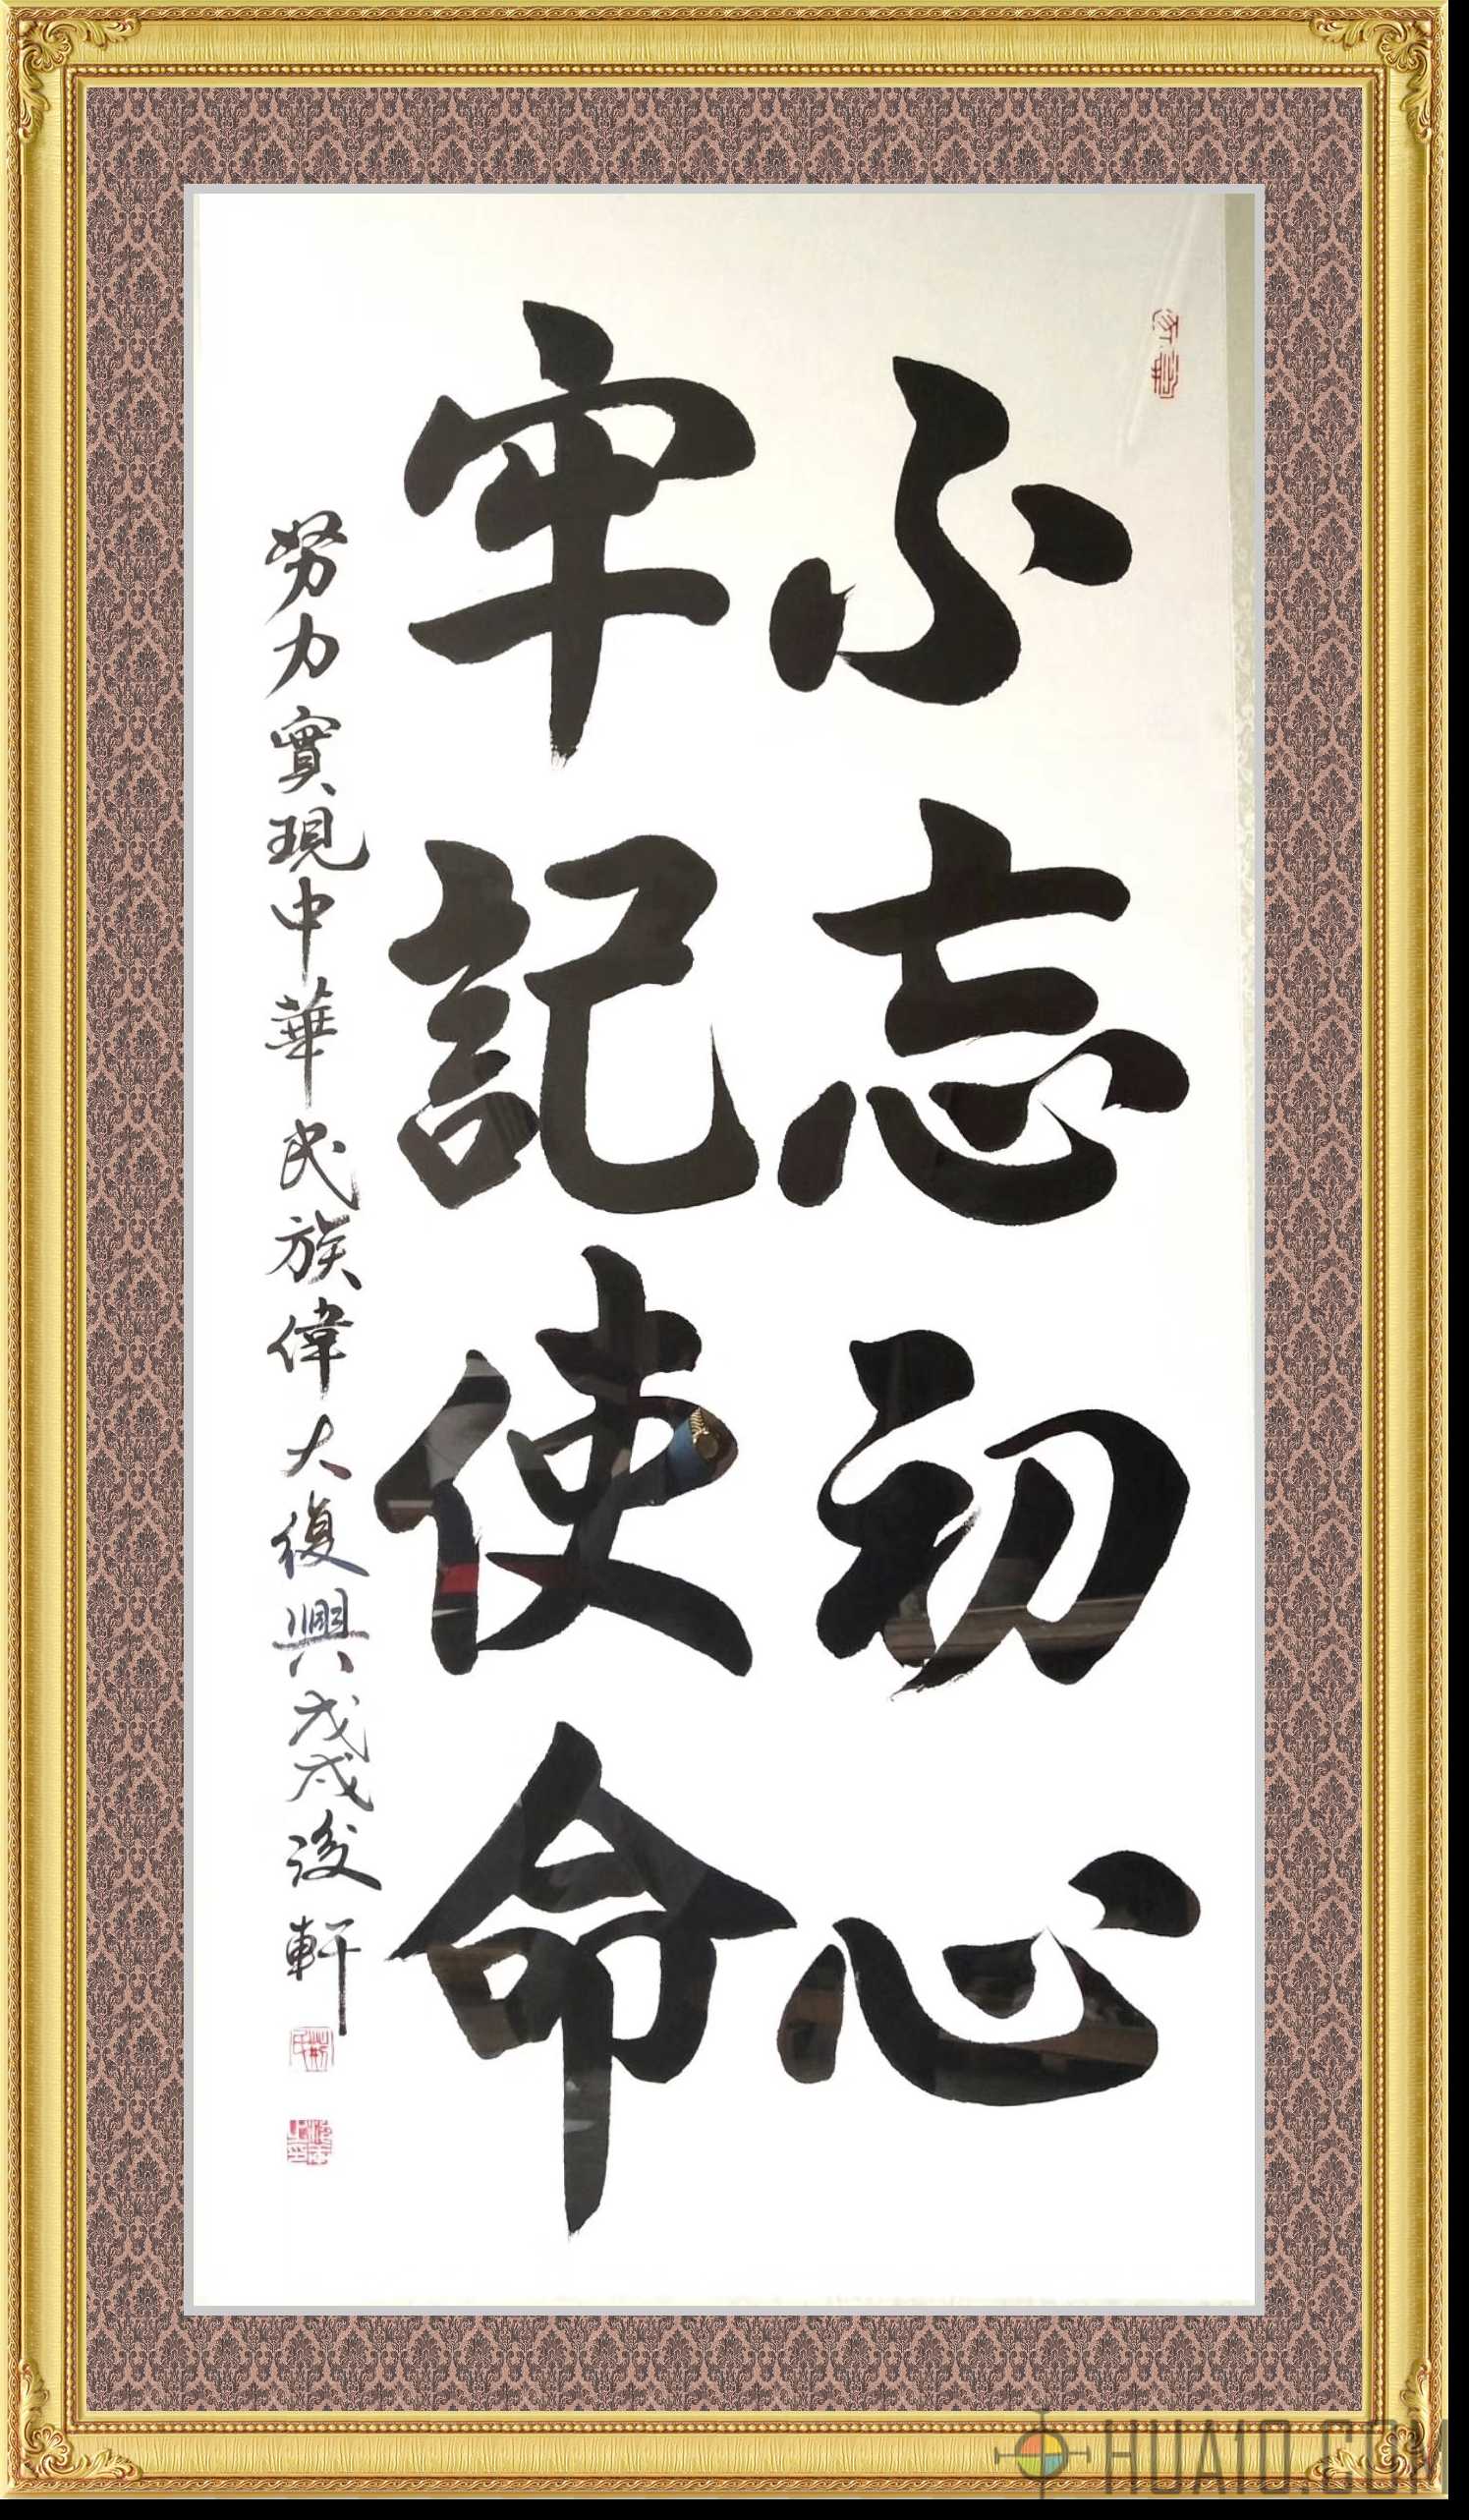 不忘初心
牢記使命
努力實現中華民族偉大復興戊戌後軒
HUA10.COM